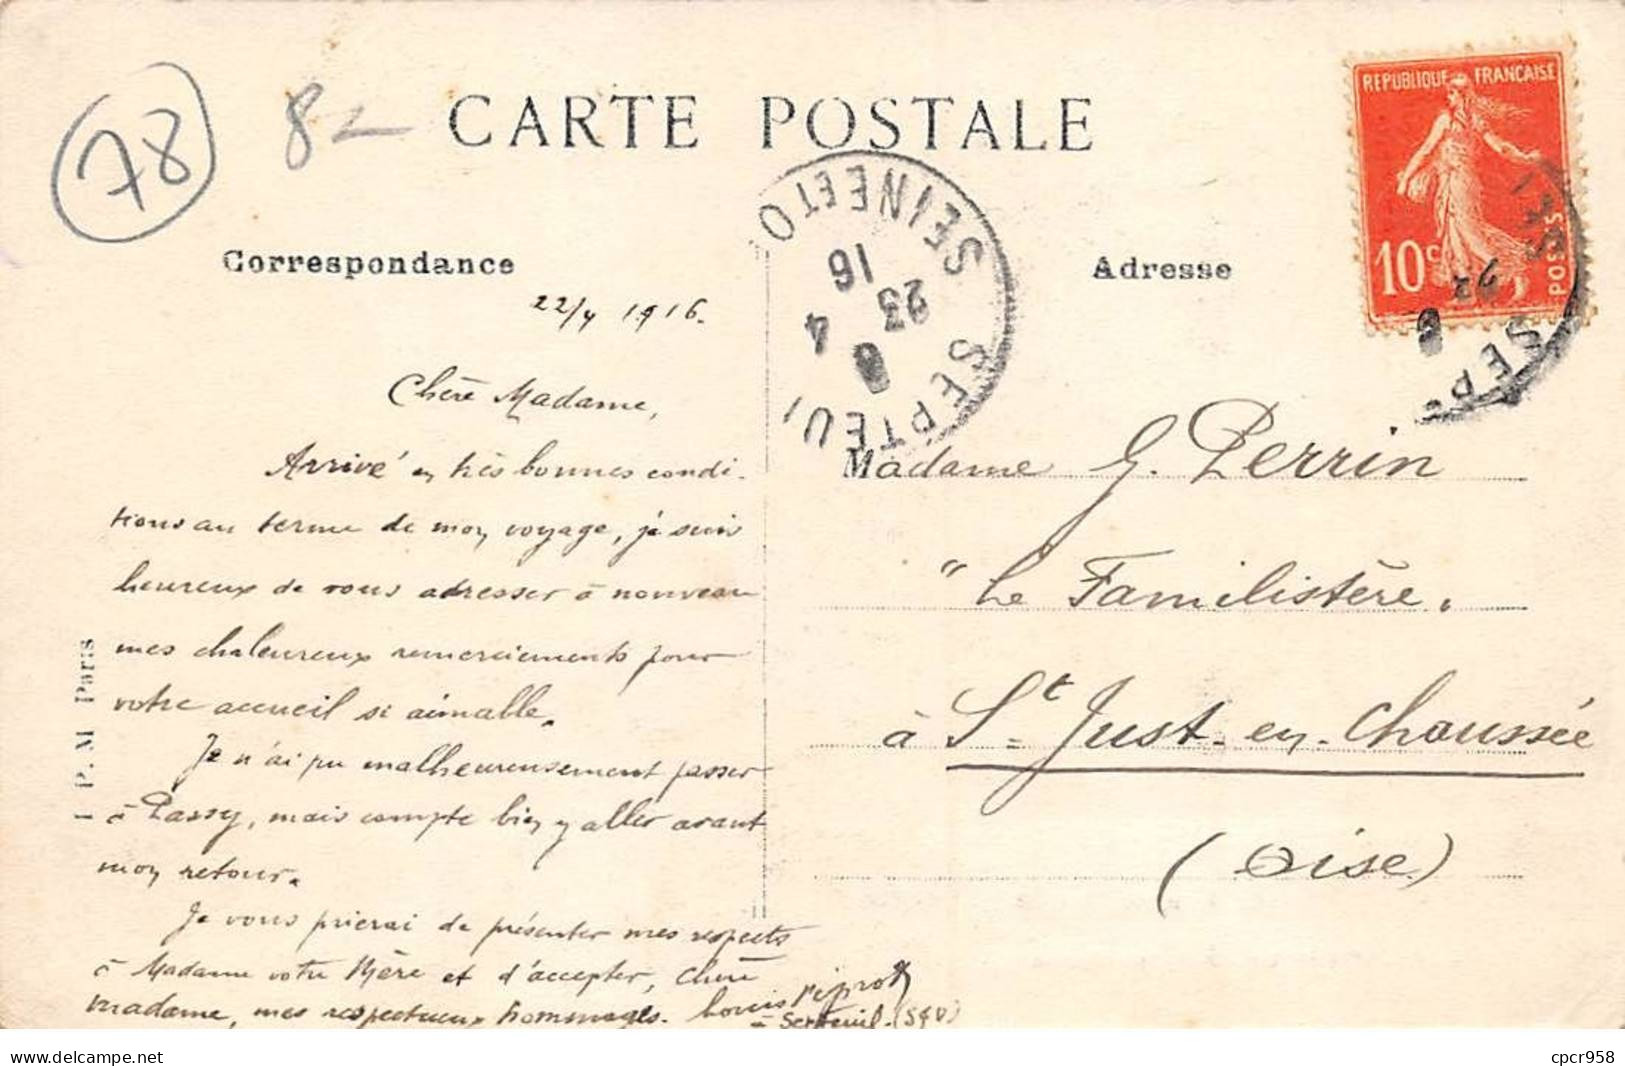 78
82
CARTE POSTALE
REPUBLIQUE FRANCAISE
10c
POSTES
SEPTEUIL
SEINE ET O
23
4
16
Correspondance
Adresse
22/4 1916.
Chère Madame,
Arrivé en très bonnes condi-
tions au terme de mon voyage, je suis
heureux de vous adresser à nouveau
mes chaleureux remerciements pour
votre accueil si aimable.
Je n'ai pu malheureusement passer
à Passy, mais compte bien y aller avant
mon retour.
Je vous prierai de présenter mes respects
à Madame votre Mère et d'accepter, Chère
madame, mes respectueux hommages. Louis
à Septeuil. (S&O)
I P. M Paris
Madame G. Perrin
"Le Familistère"
à St Just-en-Chaussée
(Oise)
www.delcampe.net
cpcr958